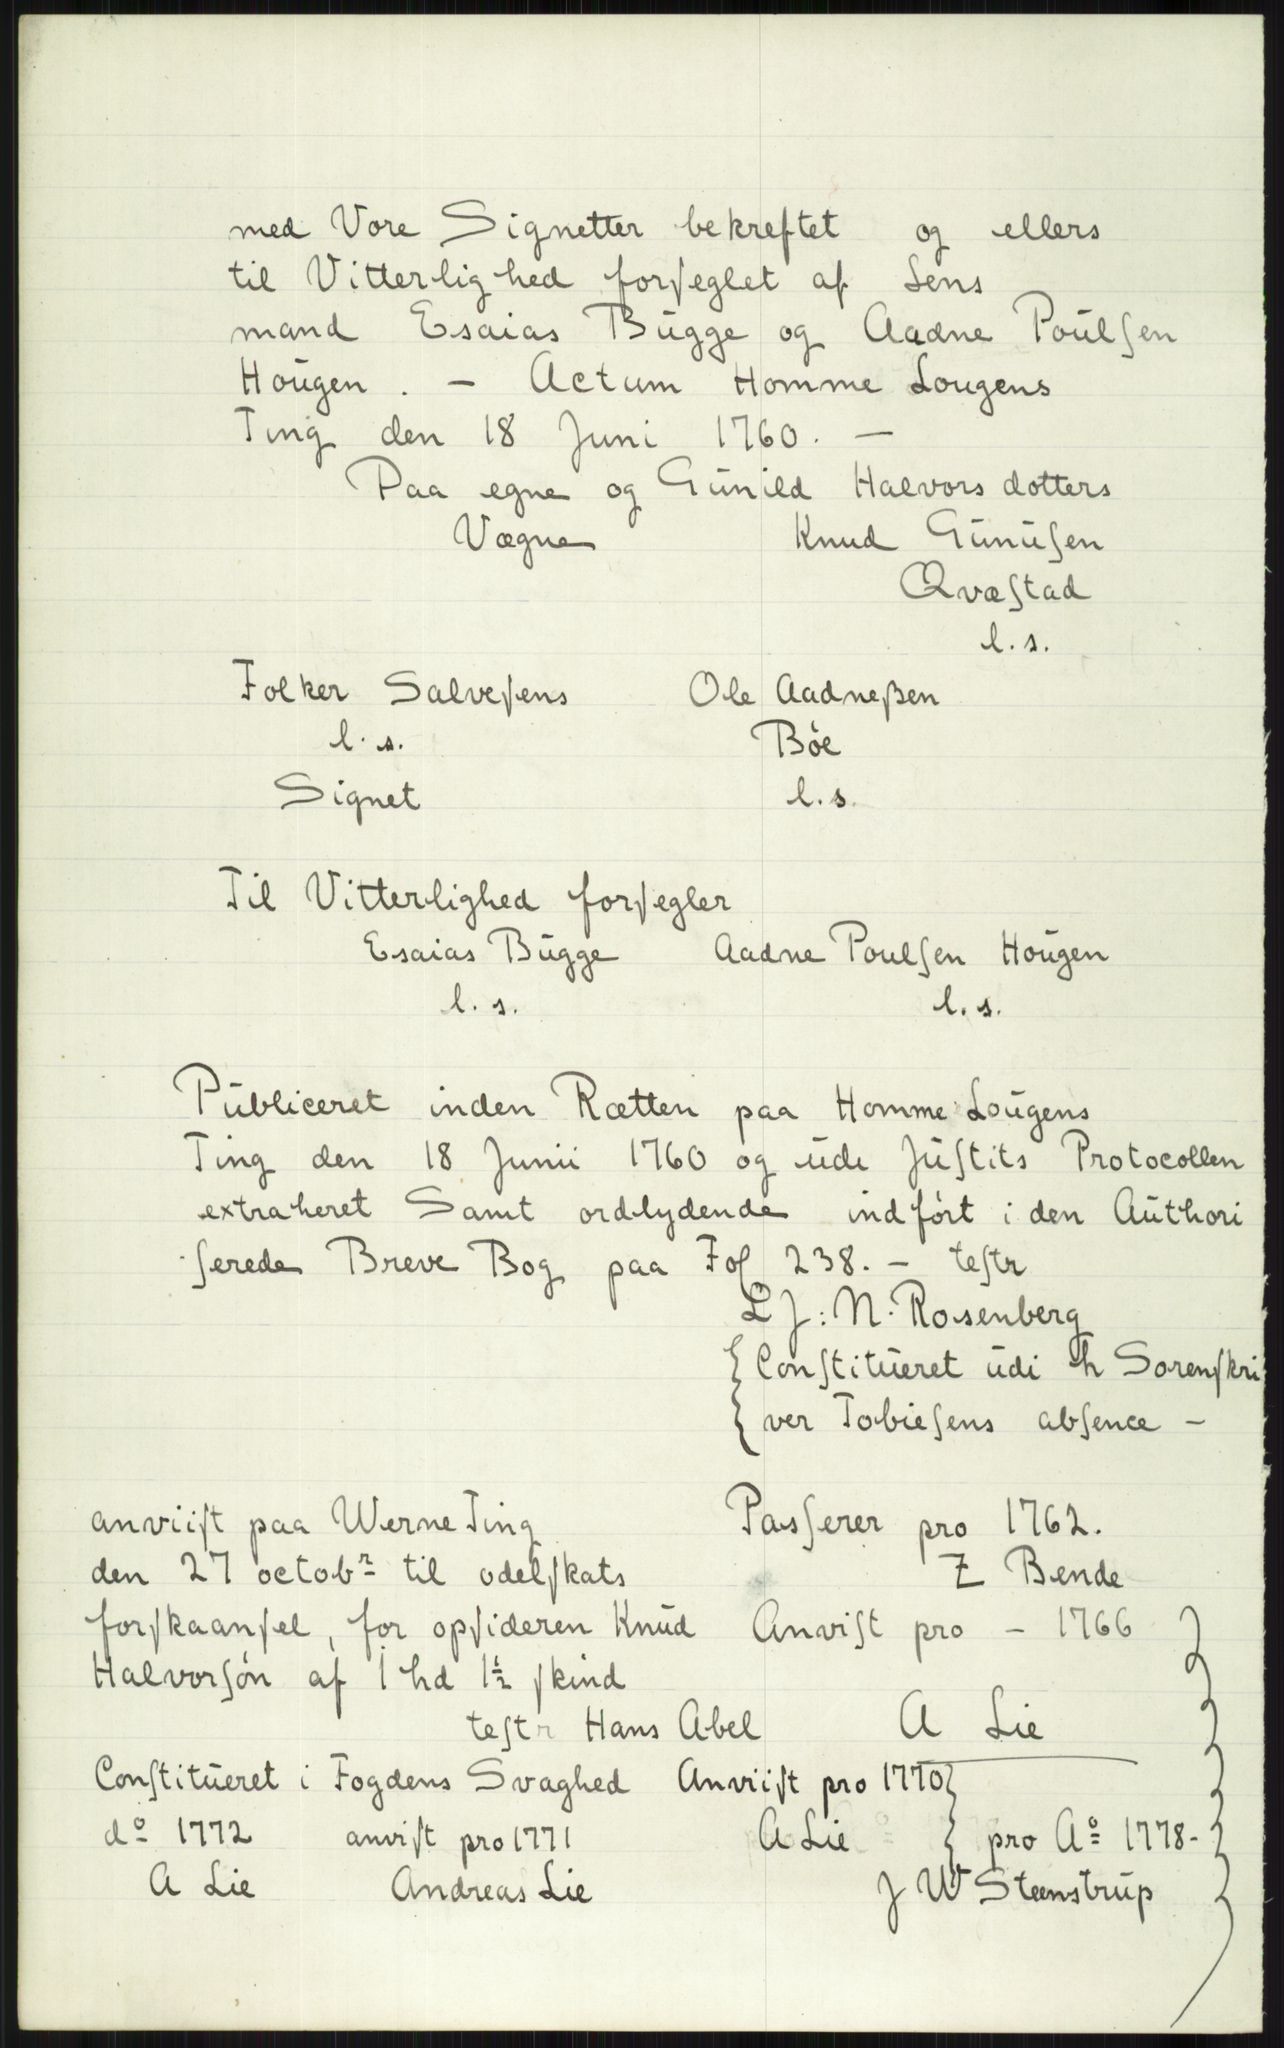 med Vore Signetter bekreftet og ellers
til Vitterlighed forseglet af Lens
mand Esaias Bugge og Aadne Poulsen
Hougen. — Actum Homme Lougens
Ting den 18 Juni 1760. —
Paa egne og Gunild Halvors dotters
Vægne Knud Gunusen
Qvæstad
l.s.
Folker Salvesens Ole Aadneßen
l.s. Böe
Signet l.s.
Til Vitterlighed forsegler
Esaias Bugge Aadne Poulsen Hougen
l.s. l.s.
Publiceret inden Rætten paa Homme Lougens
Ting den 18 Junii 1760 og udi Justits Protocollen
extraheret Samt ordlydende indført i den Authori
serede Breve Bog paa Fol 238. — testr
L J: N. Rosenberg
Constitueret udi h Sorenskri
ver Tobiesens absence —
anviist paa Werne Ting Passerer pro 1762.
den 27 octobr til odelskats Z Bende
forskaansel, for opsideren Knud Anvist pro — 1766
Halvorsön af 1 hd 1½ skind
testr Hans Abel A Lie
Constitueret i Fogdens Svaghed Anviist pro 1770
do 1772 anvist pro 1771 A Lie pro Ao 1778-
A Lie Andreas Lie J W Steenstrup